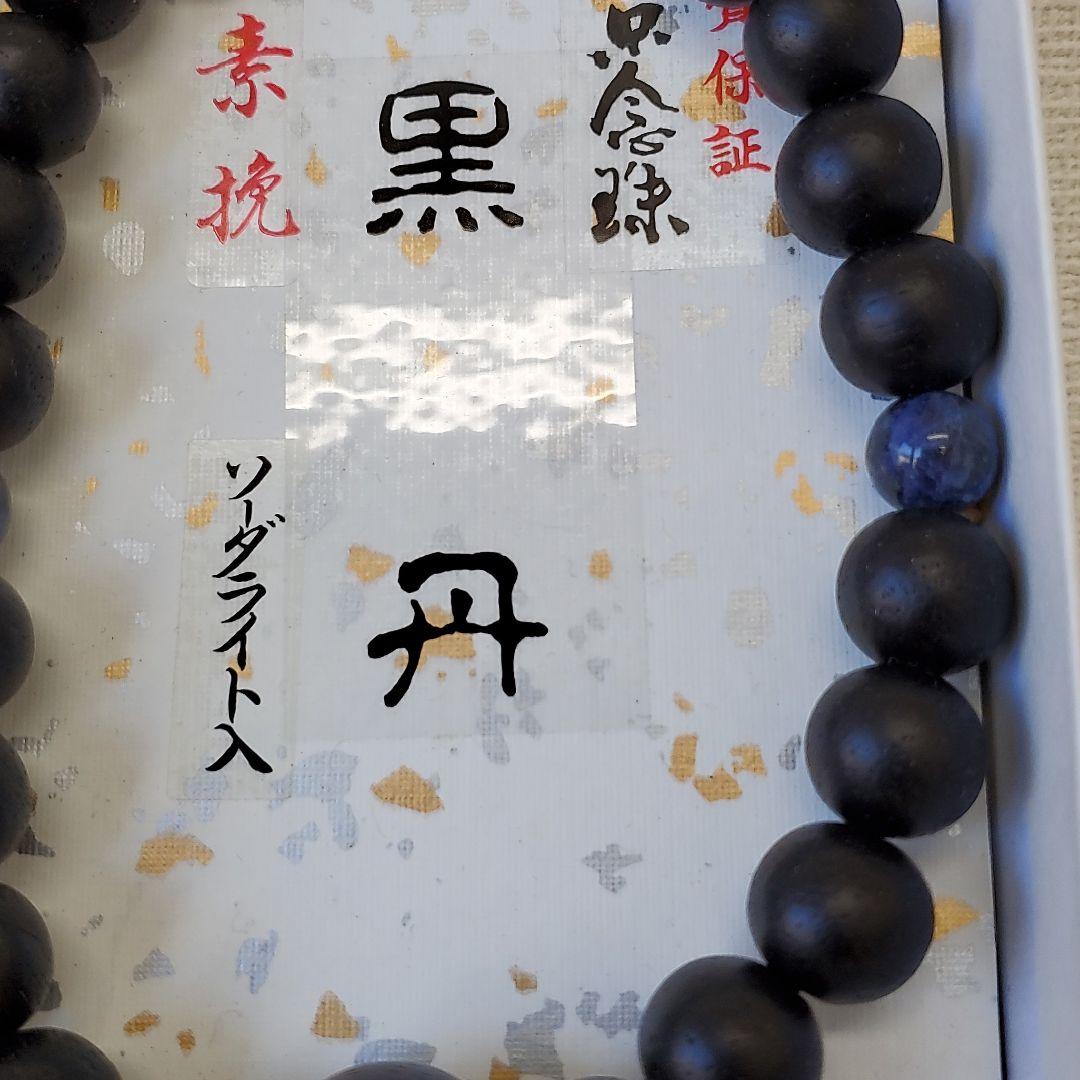 保証
念珠
黒丹
素挽
ソーダライト入